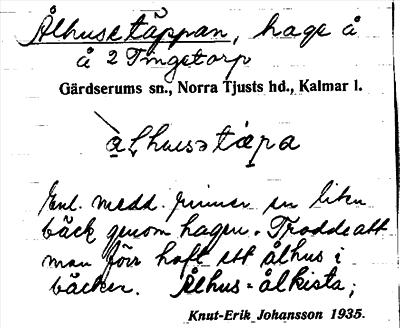 Ålhusetäppan, hage å
å 2 Tingetorp
Gärdserums sn., Norra Tjusts hd., Kalmar l.
Enl. medd. rinner en liten
bäck genom hagen. Trodde att
man förr haft ett ålhus i
bäcken. Ålhus = ålkista;
Knut-Erik Johansson 1935.